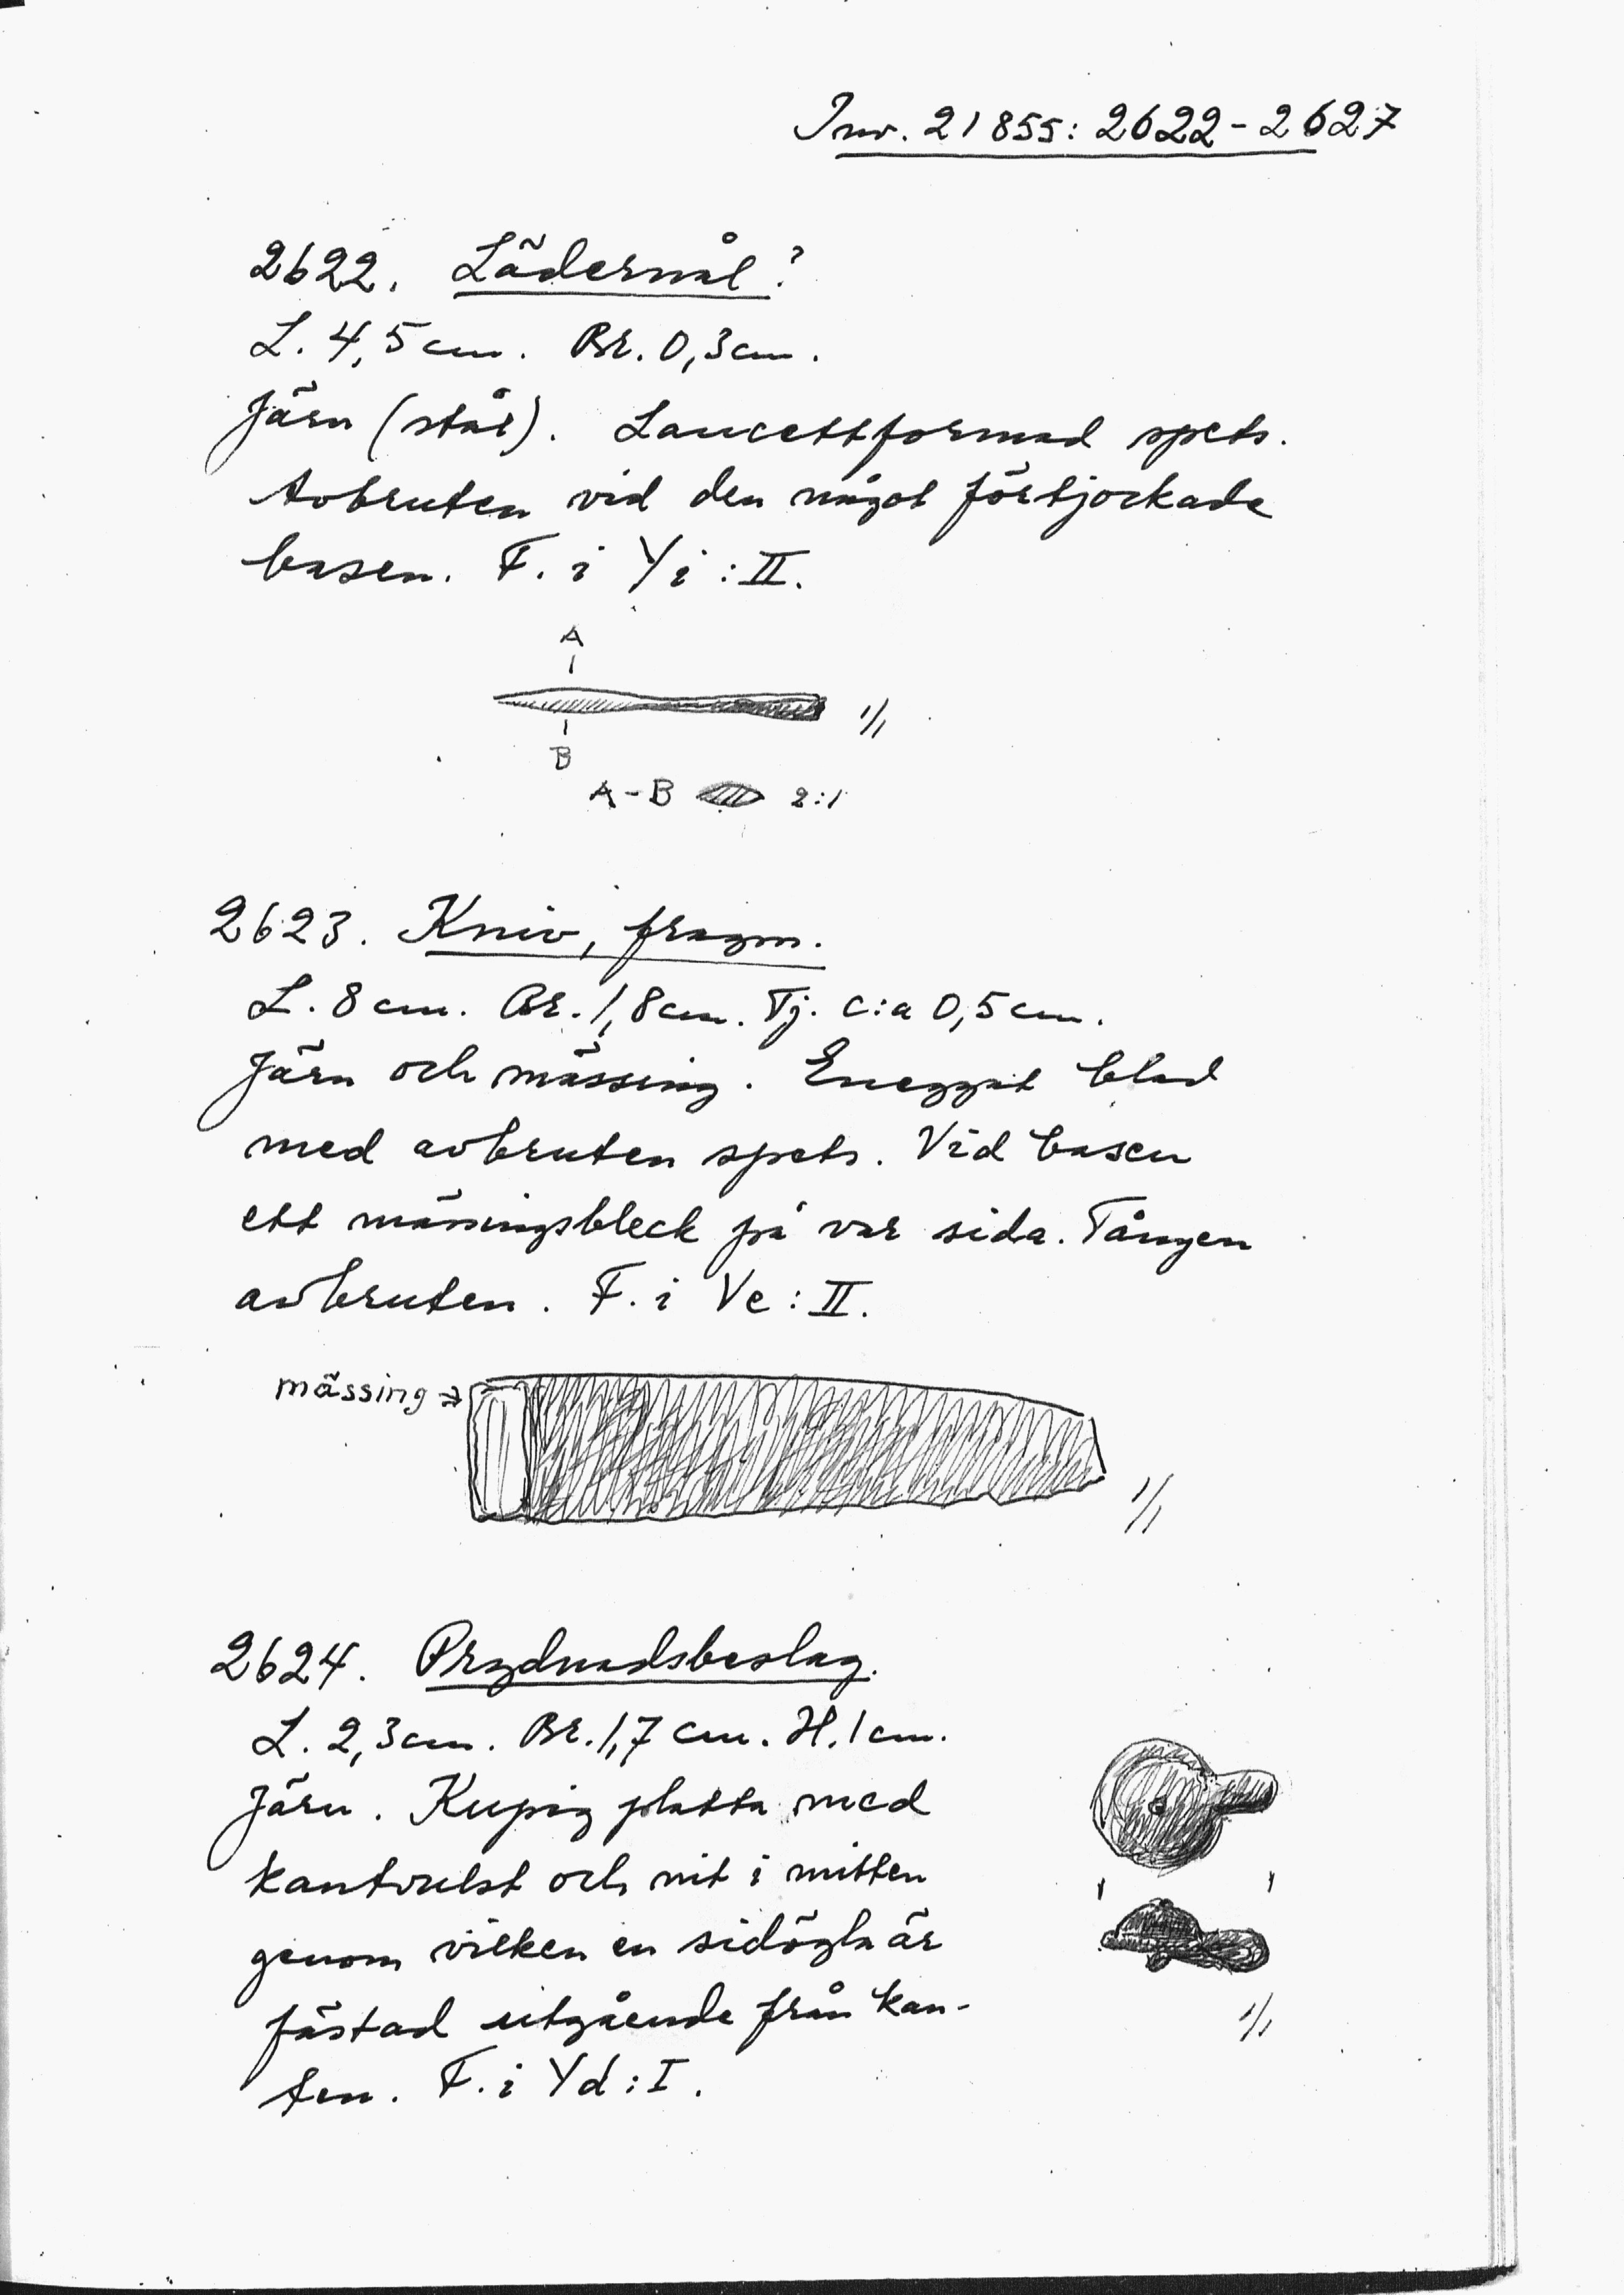 Inv. 21855: 2622-2627
2622. Lädernål?
L. 4,5 cm. Br. 0,3 cm.
Järn (stål). Lancettformad spets.
Avbruten vid den något förtjockade
basen. F. i Yi : II.
A
1/1
B
A-B 2:1
2623. Kniv, fragm.
L. 8 cm. Br. 1,8 cm. Tj. c:a 0,5 cm.
Järn och mässing. Eneggat blad
med avbruten spets. Vid basen
ett mässingsbleck på var sida. Tången
avbruten. F. i Vc : II.
mässing
1/1
2624. Prydnadsbeslag.
L. 2,3 cm. Br. 1,7 cm. H. 1 cm.
Järn. Kupig platta med
kantvulst och nit i mitten
genom vilken en sidögla är
fästad utgående från kan-
ten. F. i Yd : I.
1/1